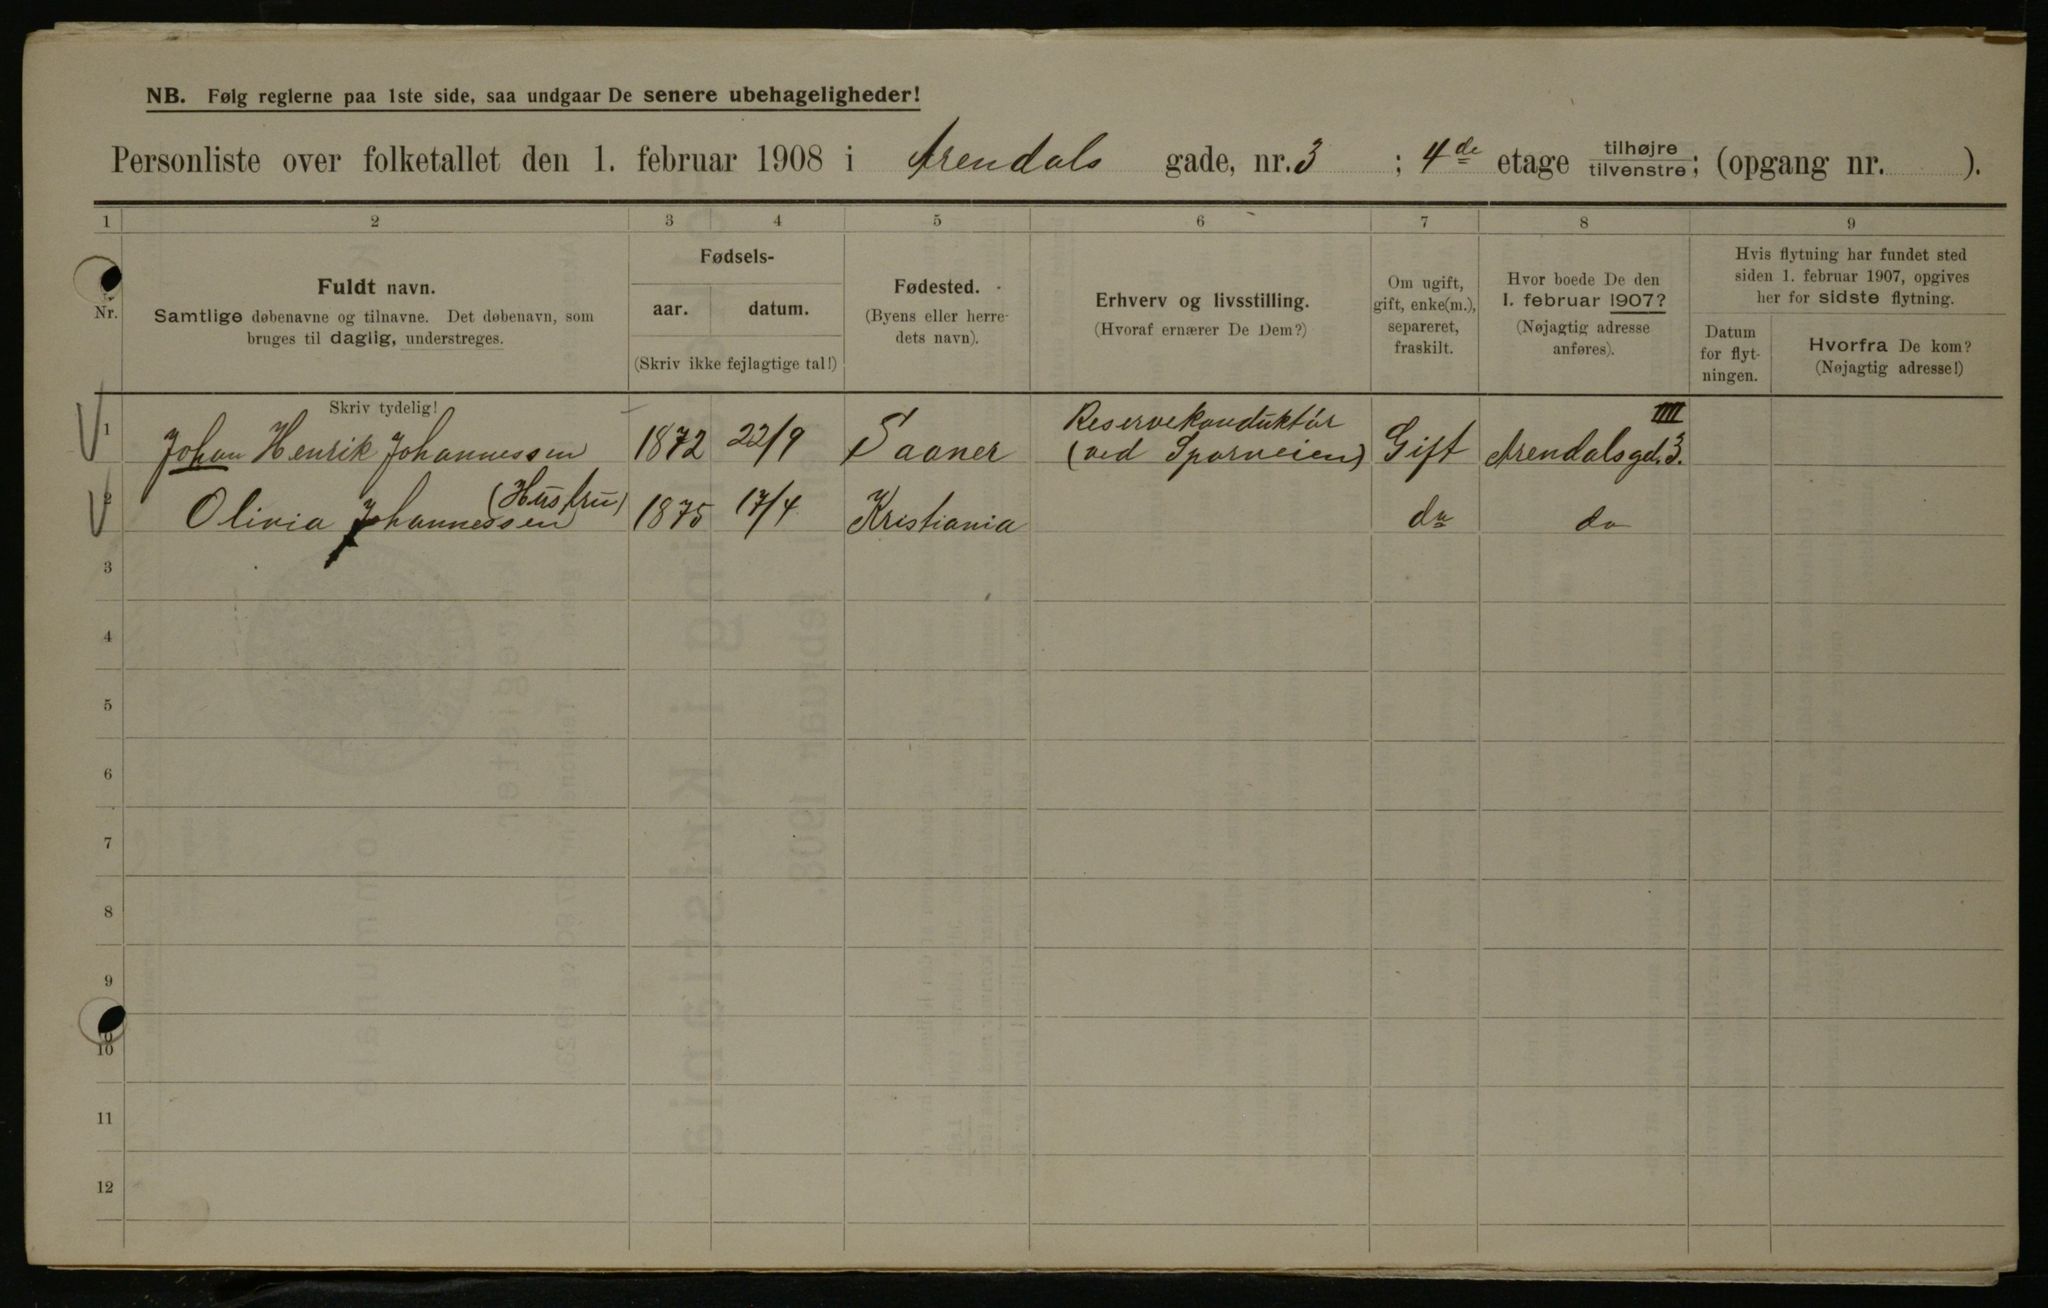 NB. Følg reglerne paa 1ste side, saa undgaar De senere ubehageligheder!
Personliste over folketallet den 1. februar 1908 i Arendals gade, nr. 3 ; 4de etage tilhøjre/tilvenstre; (opgang nr. ).
1 2 3 4 5 6 7 8 9
Nr.
Fuldt navn.
Samtlige døbenavne og tilnavne. Det døbenavn, som
bruges til daglig, understreges.
Fødsels-
aar. datum.
(Skriv ikke fejlagtige tal!)
Fødested.
(Byens eller herre-
dets navn).
Erhverv og livsstilling.
(Hvoraf ernærer De Dem?)
Om ugift,
gift, enke(m.),
separeret,
fraskilt.
Hvor boede De den
1. februar 1907?
(Nøjagtig adresse
anføres).
Hvis flytning har fundet sted
siden 1. februar 1907, opgives
her for sidste flytning.
Datum
for flyt-
ningen.
Hvorfra De kom?
(Nøjagtig adresse!)
Skriv tydelig!
1 Johan Henrik Johannessen 1872 22/9 Saaner Reservekonduktør (ved Sporveien) Gift Arendalsgd. 3. IIII
2 Olivia Johannessen (Hustru) 1875 17/4 Kristiania do do
3
4
5
6
7
8
9
10
10
11
12